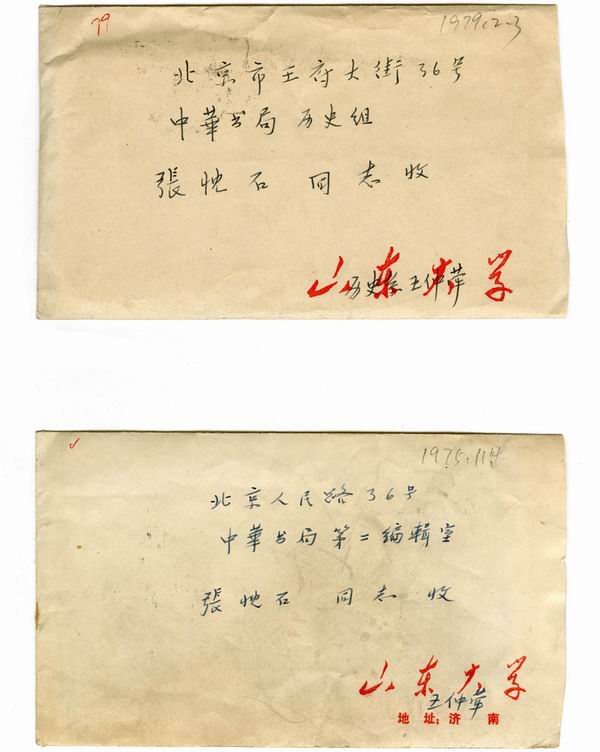 79
1979.2.3
北京市王府大街36号
中華书局 历史组
張忱石 同志收
山东大学
历史系 王仲荦
1975.11.4
北京人民路36号
中華书局第二编輯室
張忱石 同志 收
山东大学
王仲荦
地址:济南